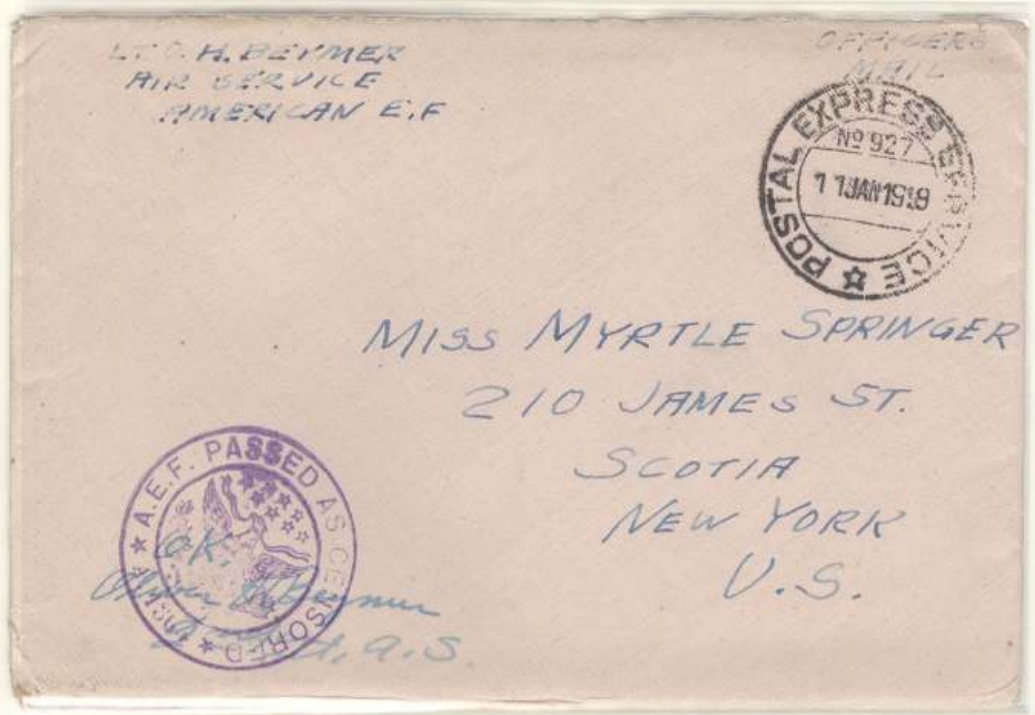 LT. O. H. BEYMER
AIR SERVICE
AMERICAN E.F
OFFICERS
MAIL
POSTAL EXPRESS SERVICE
No 927
11 JAN 19
MISS MYRTLE SPRINGER
210 JAMES ST.
SCOTIA
NEW YORK
U.S.
A.E.F. PASSED AS CENSORED
OK,
Oliver H Beymer
A.S.